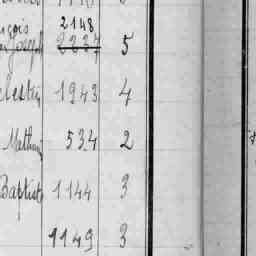 2148
Joseph 2237 5
1943 4
Mathieu 534 2
Baptiste 1144 3
1149 3